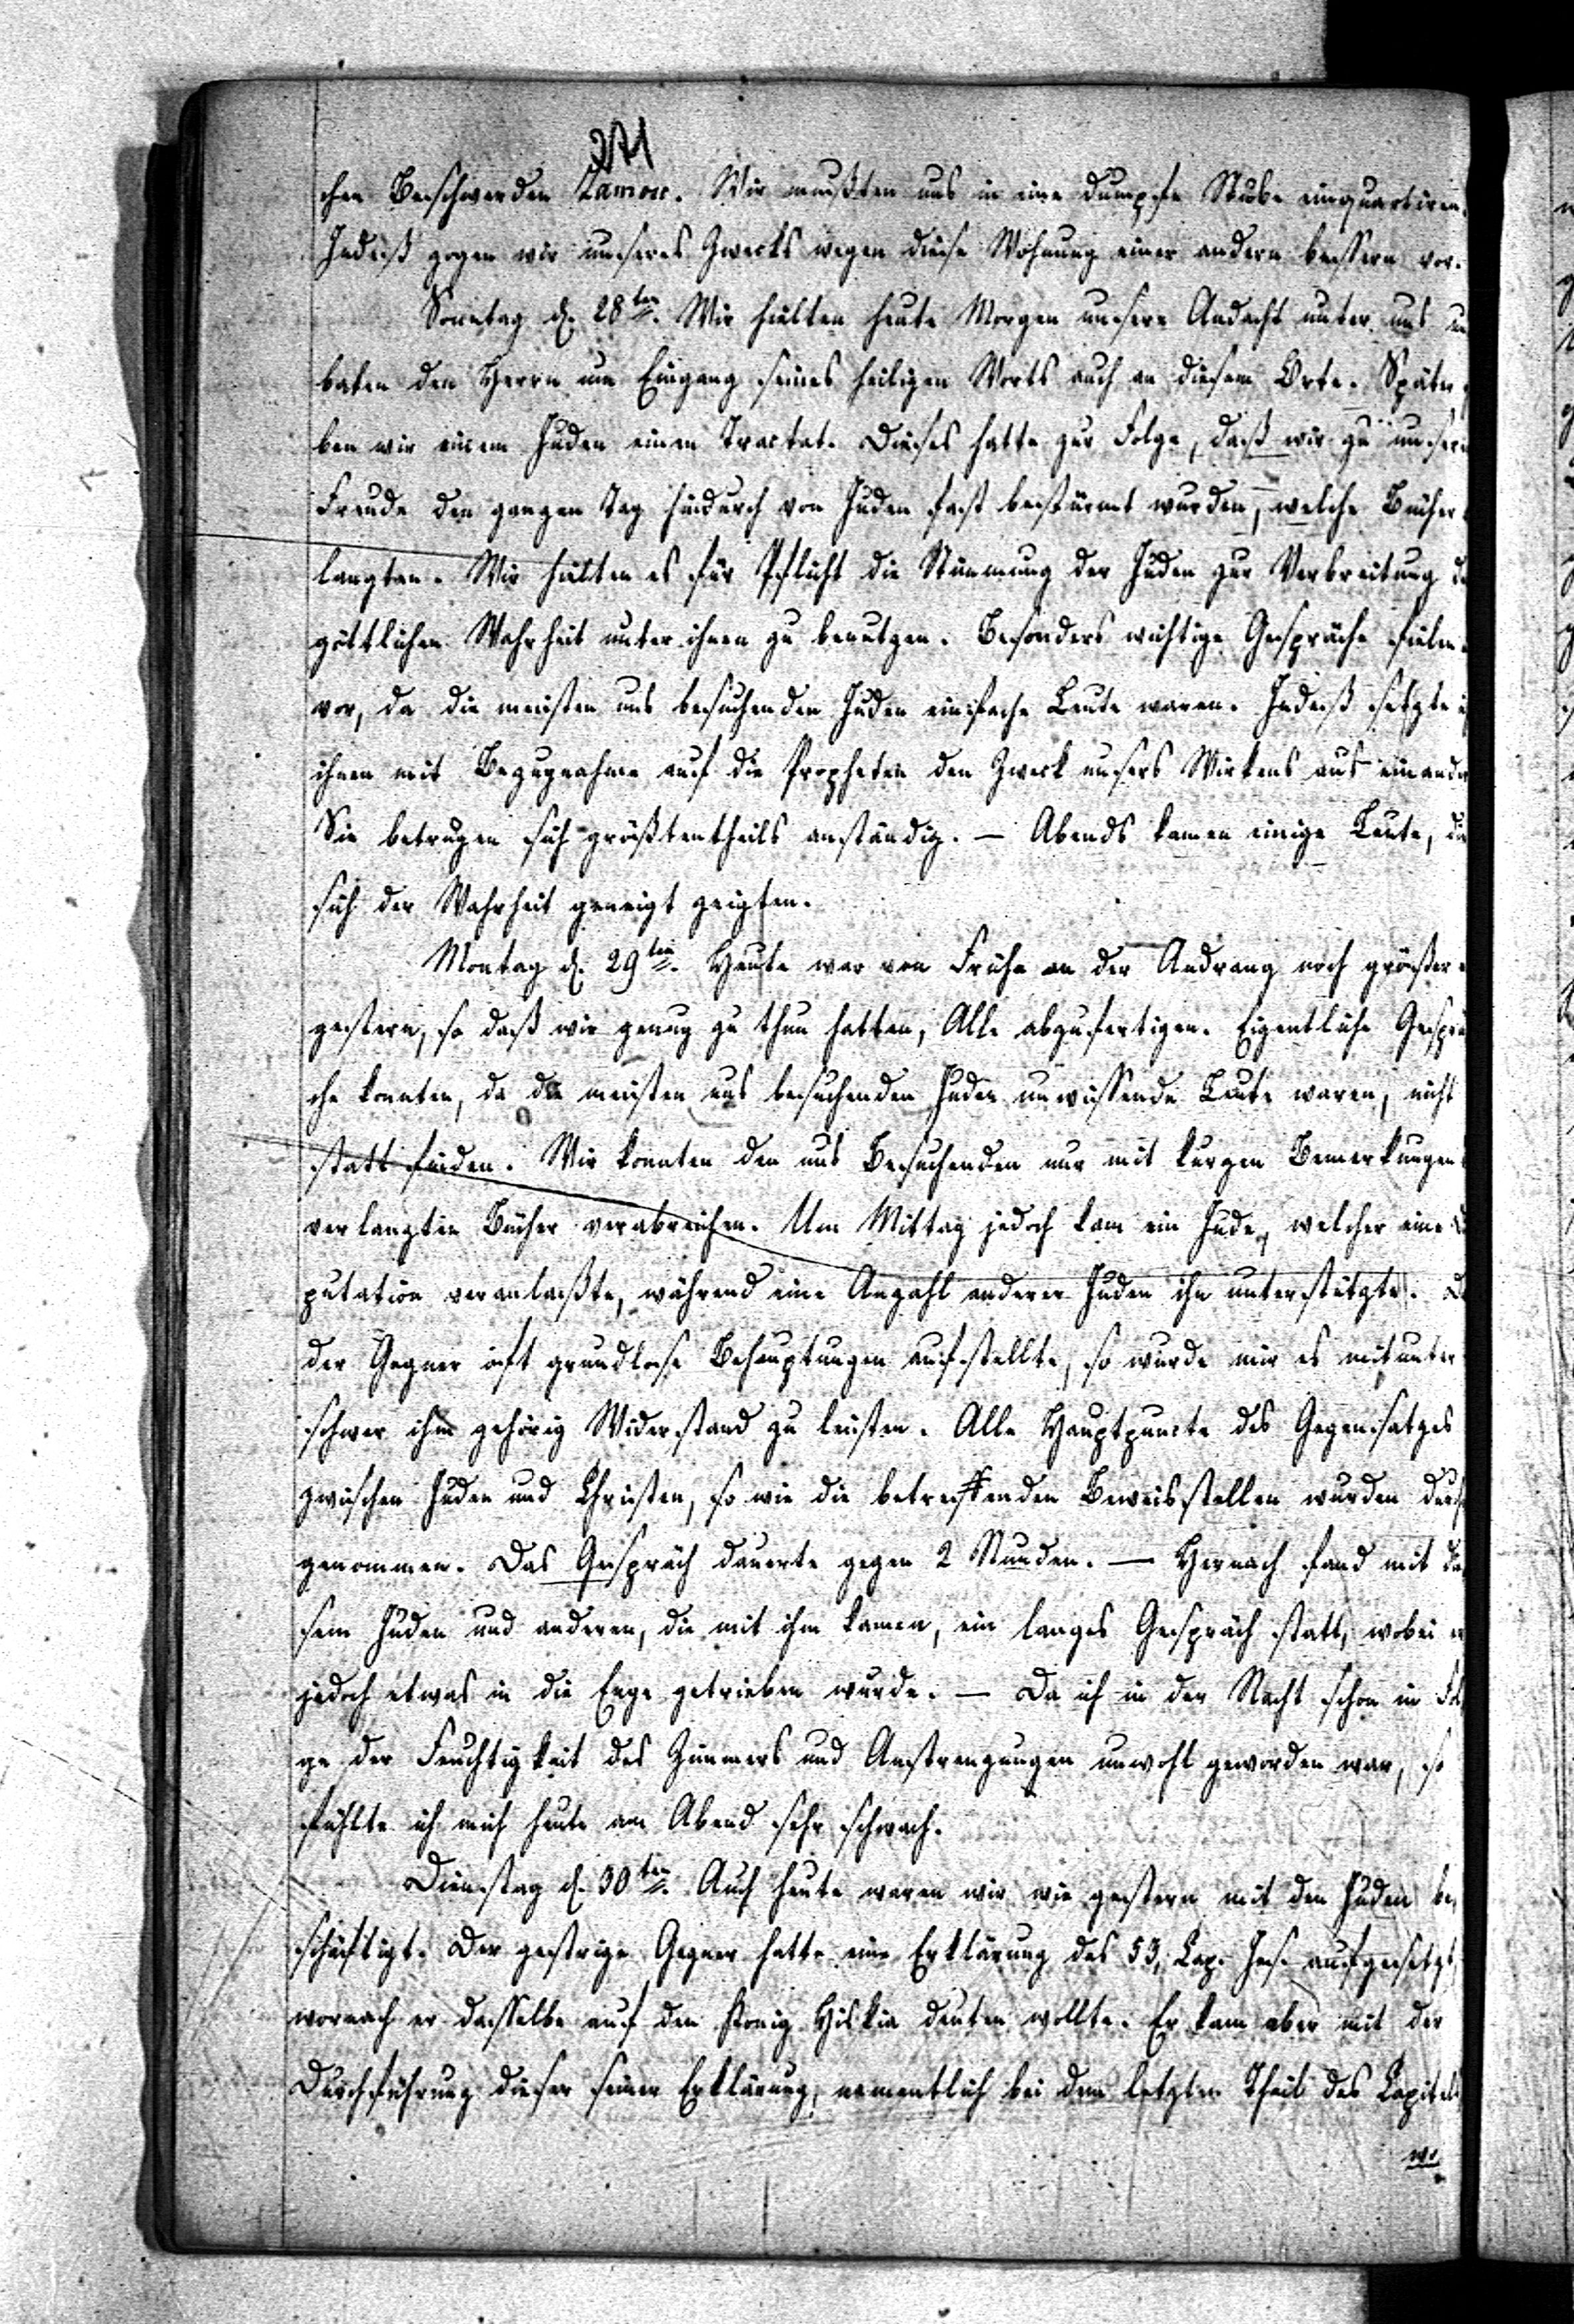 chen Beschwerden Zamosc. Wir mußten uns in eine dumpfe Stube einquartiren.
Indeß zogen wir unseres Zwecks wegen diese Wohnung einer andern bessern vor.
Sonntag d. 28ten. Wir hielten heute Morgen unsere Andacht unter uns un
baten den Herrn um Eingang seines heiligen Worts auch an diesem Orte. Später
ben wir einem Juden einen Tractat. Dieses hatte zur Folge, daß wir zu unserer
Freude den ganzen Tag hindurch von Juden fast bestürmt wurden, welche Bücher
langten. Wir hielten es für Pflicht die Stimmung der Juden zur Verbreitung de
göttlichen Wahrheit unter ihnen zu benutzen. Besonders wichtige Gespräche fielen
vor, da die meisten uns besuchenden Juden einfache Leute waren. Indeß setzte i
ihnen mit Bezugnahme auf die Propheten den Zweck unsers Wirkens aus einander
Sie betrugen sich größtentheils anständig. — Abends kamen einige Leute, die
sich der Wahrheit geneigt zeigten.
Montag d. 29ten. Heute war von Frühe an der Andrang noch größer
gestern, so daß wir genug zu thun hatten, Alle abzufertigen. Eigentliche Gesprä
che konnten, da die meisten uns besuchenden Juden unwissende Leute waren, nicht
statt finden. Wir konnten den uns Besuchenden nur mit kurzen Bemerkungen
verlangten Bücher verabreichen. Um Mittag jedoch kam ein Jude, welcher eine
putation veranlaßte, während eine Anzahl anderer Juden ihn unterstützte. Da
der Gegner oft grundlose Behauptungen aufstellte, so wurde mir es mitunter
schwer ihm gehörig Widerstand zu leisten. Alle Hauptpuncte des Gegensatzes
zwischen Juden und Christen, so wie die betreffenden Beweisstellen wurden durch
genommen. Das Gespräch dauerte gegen 2 Stunden. — Hernach fand mit die
sem Juden und anderen, die mit ihm kamen, ein langes Gespräch statt, wobei er
jedoch etwas in die Enge getrieben wurde. — Da ich in der Nacht schon in Fol
ge der Feuchtigkeit des Zimmers und Anstrengungen unwohl geworden war, so
fühlte ich mich heute am Abend sehr schwach.
Dienstag d. 30ten. Auch heute waren wir wie gestern mit den Juden be
schäftigt. Der gestrige Gegner hatte eine Erklärung des 53. Cap. Jes. aufgesetzt,
wornach er dasselbe auf den König Hiskia deuten wollte. Er kam aber mit der
Durchführung dieser seiner Erklärung, namentlich bei dem letzten Theil des Capitels
wo